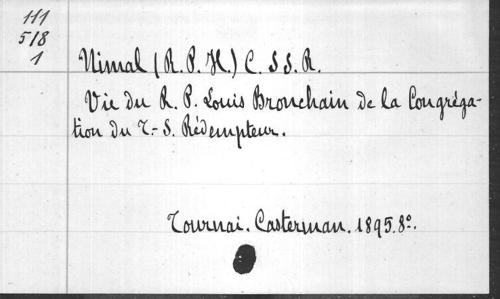 111
518
1
Nimal (R. P. H.) C. S S. R.
Vie du R. P. Louis Bronchain de la Congréga-
tion du T.-S. Rédempteur.
Tournai. Casterman. 1895. 8º.